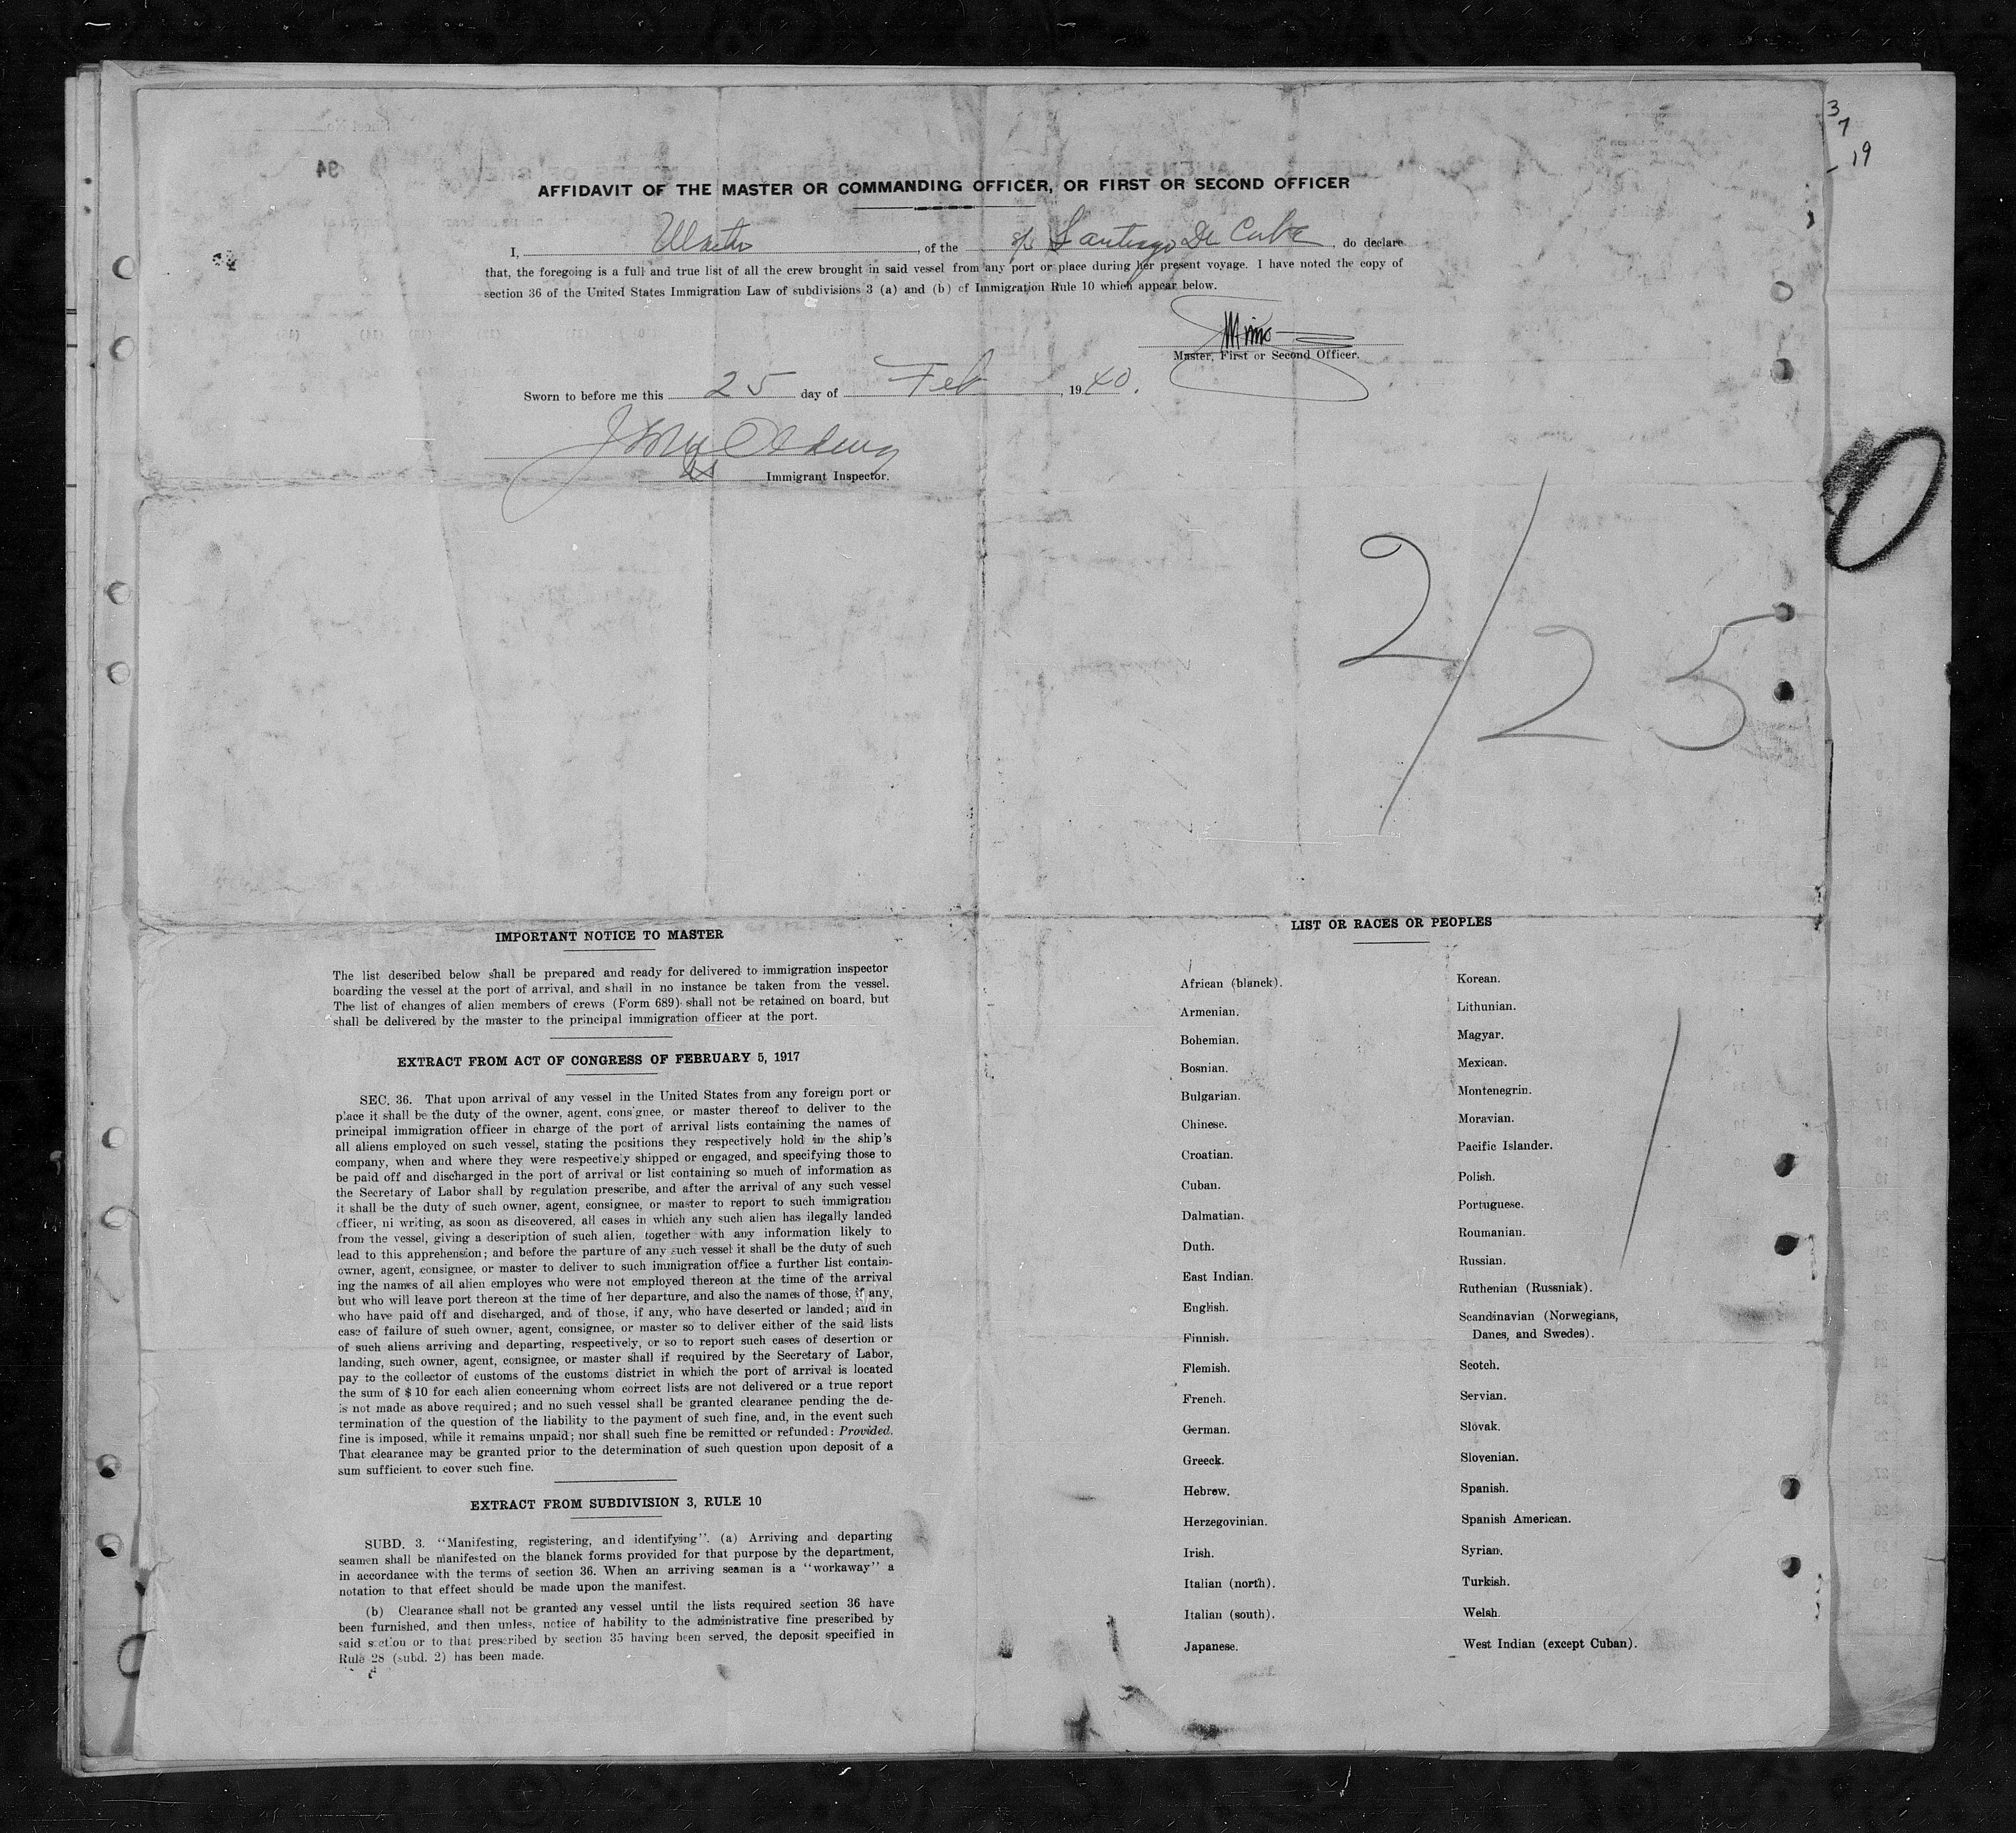 3
7
19
AFFIDAVIT OF THE MASTER OR COMMANDING OFFICER, OR FIRST OR SECOND OFFICER
I, Master, of the s/s Santiago De Cuba, do declare
that, the foregoing is a full and true list of all the crew brought in said vessel from any port or place during her present voyage. I have noted the copy of
section 36 of the United States Immigration Law of subdivisions 3 (a) and (b) of Immigration Rule 10 which appear below.
Master, First or Second Officer.
Sworn to before me this 25 day of Feb, 1940.
Immigrant Inspector.
0
2/25
IMPORTANT NOTICE TO MASTER
The list described below shall be prepared and ready for delivered to immigration inspector
boarding the vessel at the port of arrival, and shall in no instance be taken from the vessel.
The list of changes of alien members of crews (Form 689) shall not be retained on board, but
shall be delivered by the master to the principal immigration officer at the port.
EXTRACT FROM ACT OF CONGRESS OF FEBRUARY 5, 1917
SEC. 36. That upon arrival of any vessel in the United States from any foreign port or
place it shall be the duty of the owner, agent, consignee, or master thereof to deliver to the
principal immigration officer in charge of the port of arrival lists containing the names of
all aliens employed on such vessel, stating the positions they respectively hold in the ship's
company, when and where they were respectively shipped or engaged, and specifying those to
be paid off and discharged in the port of arrival or list containing so much of information as
the Secretary of Labor shall by regulation prescribe, and after the arrival of any such vessel
it shall be the duty of such owner, agent, consignee, or master to report to such immigration
officer, ni writing, as soon as discovered, all cases in which any such alien has ilegally landed
from the vessel, giving a description of such alien, together with any information likely to
lead to this apprehension; and before the parture of any such vessel it shall be the duty of such
owner, agent, consignee, or master to deliver to such immigration office a further list contain-
ing the names of all alien employes who were not employed thereon at the time of the arrival
but who will leave port thereon at the time of her departure, and also the names of those, if any,
who have paid off and discharged, and of those, if any, who have deserted or landed; and in
case of failure of such owner, agent, consignee, or master so to deliver either of the said lists
of such aliens arriving and departing, respectively, or so to report such cases of desertion or
landing, such owner, agent, consignee, or master shall if required by the Secretary of Labor,
pay to the collector of customs of the customs district in which the port of arrival is located
the sum of $ 10 for each alien concerning whom correct lists are not delivered or a true report
is not made as above required; and no such vessel shall be granted clearance pending the de-
termination of the question of the liability to the payment of such fine, and, in the event such
fine is imposed, while it remains unpaid; nor shall such fine be remitted or refunded: Provided.
That clearance may be granted prior to the determination of such question upon deposit of a
sum sufficient to cover such fine.
EXTRACT FROM SUBDIVISION 3, RULE 10
SUBD. 3. "Manifesting, registering, and identifying". (a) Arriving and departing
seamen shall be manifested on the blanck forms provided for that purpose by the department,
in accordance with the terms of section 36. When an arriving seaman is a "workaway" a
notation to that effect should be made upon the manifest.
(b) Clearance shall not be granted any vessel until the lists required section 36 have
been furnished, and then unless, notice of hability to the administrative fine prescribed by
said section or to that prescribed by section 35 having been served, the deposit specified in
Rule 28 (subd. 2) has been made.
LIST OR RACES OR PEOPLES
African (blanck).
Armenian.
Bohemian.
Bosnian.
Bulgarian.
Chinese.
Croatian.
Cuban.
Dalmatian.
Duth.
East Indian.
English.
Finnish.
Flemish.
French.
German.
Greeck.
Hebrew.
Herzegovinian.
Irish.
Italian (north).
Italian (south).
Japanese.
Korean.
Lithunian.
Magyar.
Mexican.
Montenegrin.
Moravian.
Pacific Islander.
Polish.
Portuguese.
Roumanian.
Russian.
Ruthenian (Russniak).
Scandinavian (Norwegians,
Danes, and Swedes).
Scotch.
Servian.
Slovak.
Slovenian.
Spanish.
Spanish American.
Syrian.
Turkish.
Welsh.
West Indian (except Cuban).